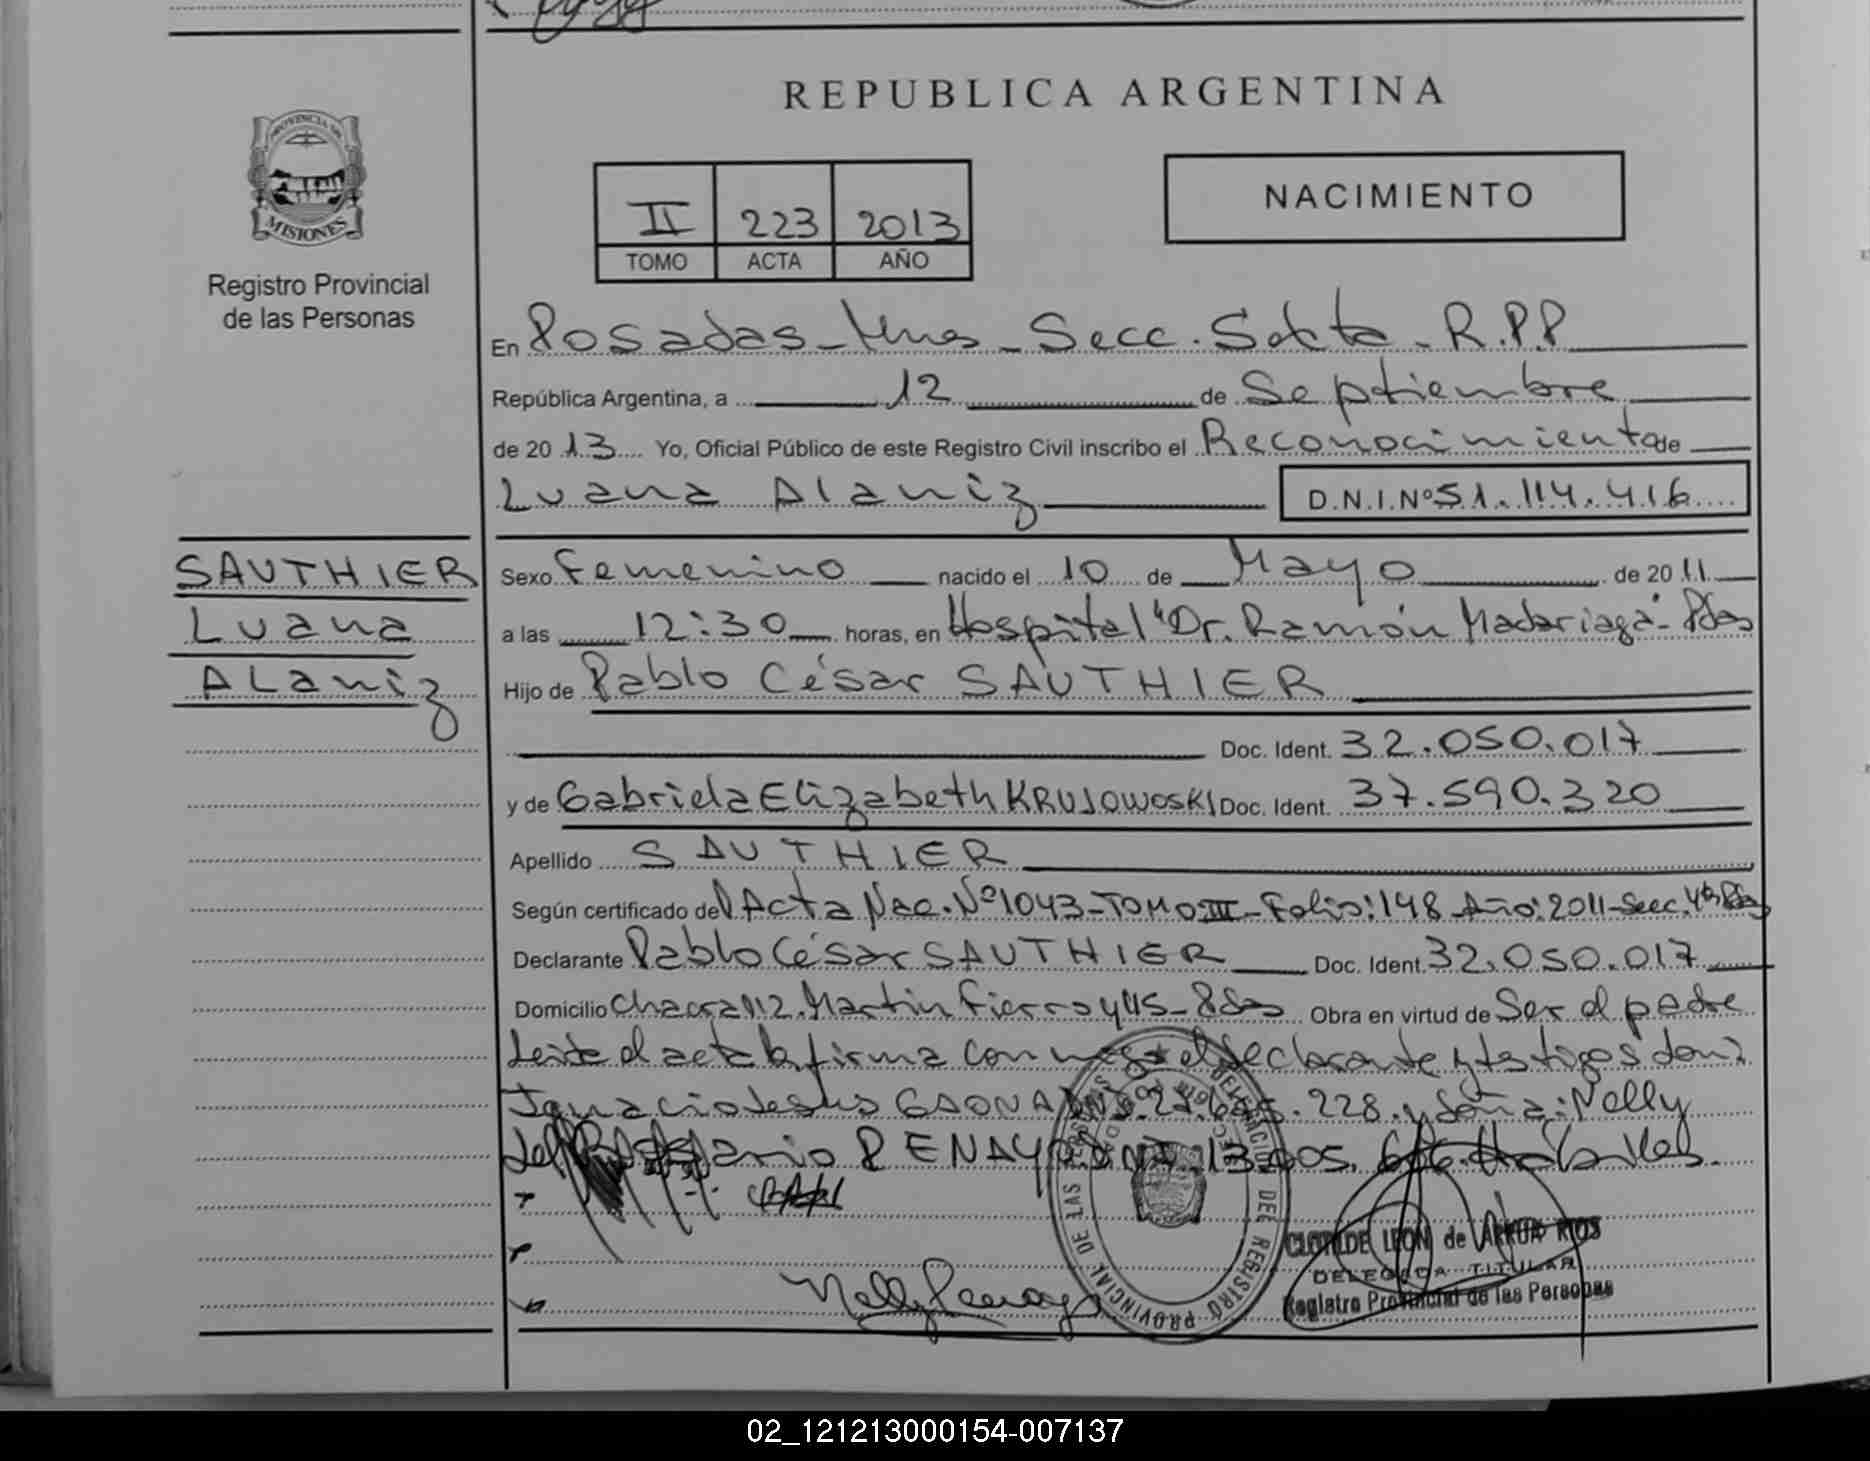 REPUBLICA ARGENTINA
PROVINCIA DE
MISIONES
Registro Provincial
de las Personas
II 223 2013
TOMO ACTA AÑO
NACIMIENTO
En Posadas - Mnes - Secc. Sexta - R.P.P
República Argentina, a 12 de Septiembre
de 2013 Yo, Oficial Público de este Registro Civil inscribo el Reconocimiento de
Luana Alaniz D.N.I.Nº 51.114.416
SAUTHIER
Luana
Alaniz
Sexo Femenino nacido el 10 de Mayo de 2011
a las 12:30 horas, en Hospital "Dr. Ramón Madariaga" - Pdas
Hijo de Pablo César SAUTHIER
Doc. Ident. 32.050.017
y de Gabriela Elizabeth KRUJOWOSKI Doc. Ident. 37.590.320
Apellido SAUTHIER
Según certificado del Acta Nac. Nº 1043 - TOMO III - Folio: 148 Año: 2011 - Secc. 4ta Pdas
Declarante Pablo César SAUTHIER Doc. Ident. 32.050.017
Domicilio Chacra 112. Martin Fierro 4115 - Pdas Obra en virtud de Ser el padre
Leida el acta la firma con migo el declarante y testigos don:
Ignacio Jesús GAONA DNI. 228. y doña: Nelly
del Rosario PENAYO DNI. 13.005. Hábiles.
Nelly Penayo
REGISTRO PROVINCIAL DE LAS PERSONAS
CLOTILDE LEON de ARRUA RIOS
DELEGADA TITULAR
Registro Provincial de las Personas
02_121213000154-007137